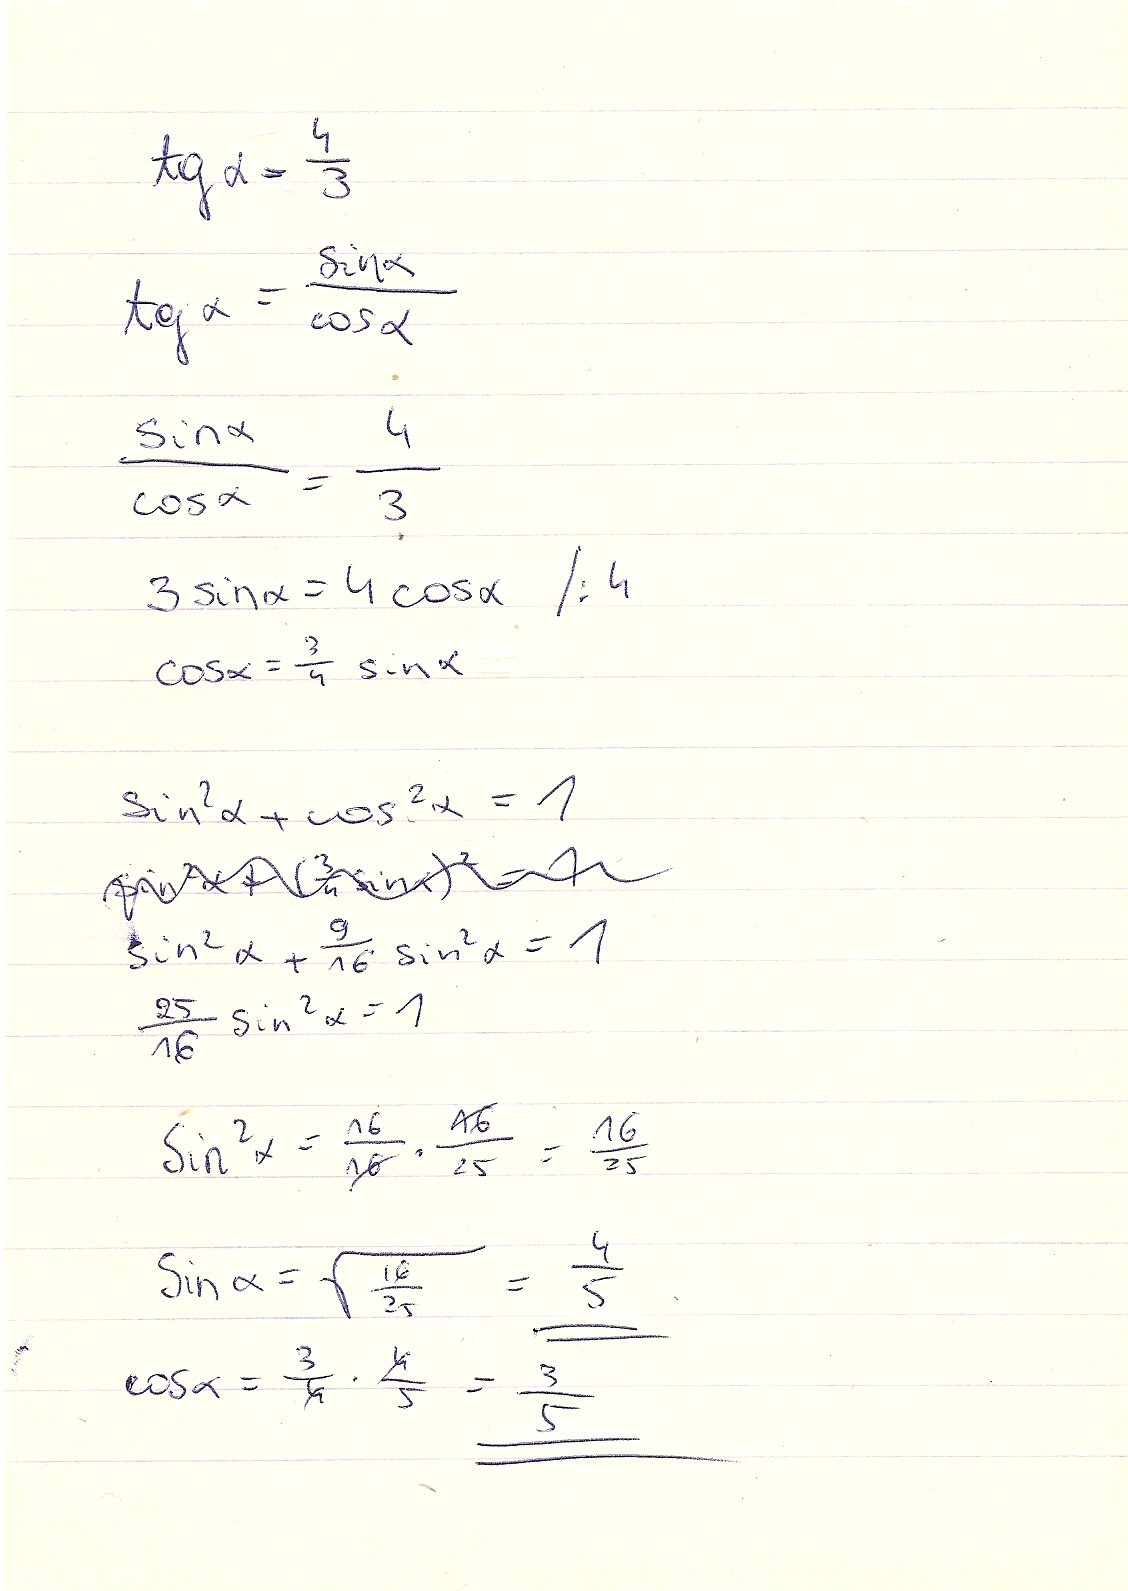 tg α = 4/3
tg α = sinα/cosα
sinα/cosα = 4/3
3 sinα = 4 cosα /:4
cosα = 3/4 sinα
sin²α + cos²α = 1
sin²α + (3/4 sinα)² = 1
sin²α + 9/16 sin²α = 1
25/16 sin²α = 1
Sin²α = 16/16 · 16/25 = 16/25
Sinα = √(16/25) = 4/5
cosα = 3/4 · 4/5 = 3/5